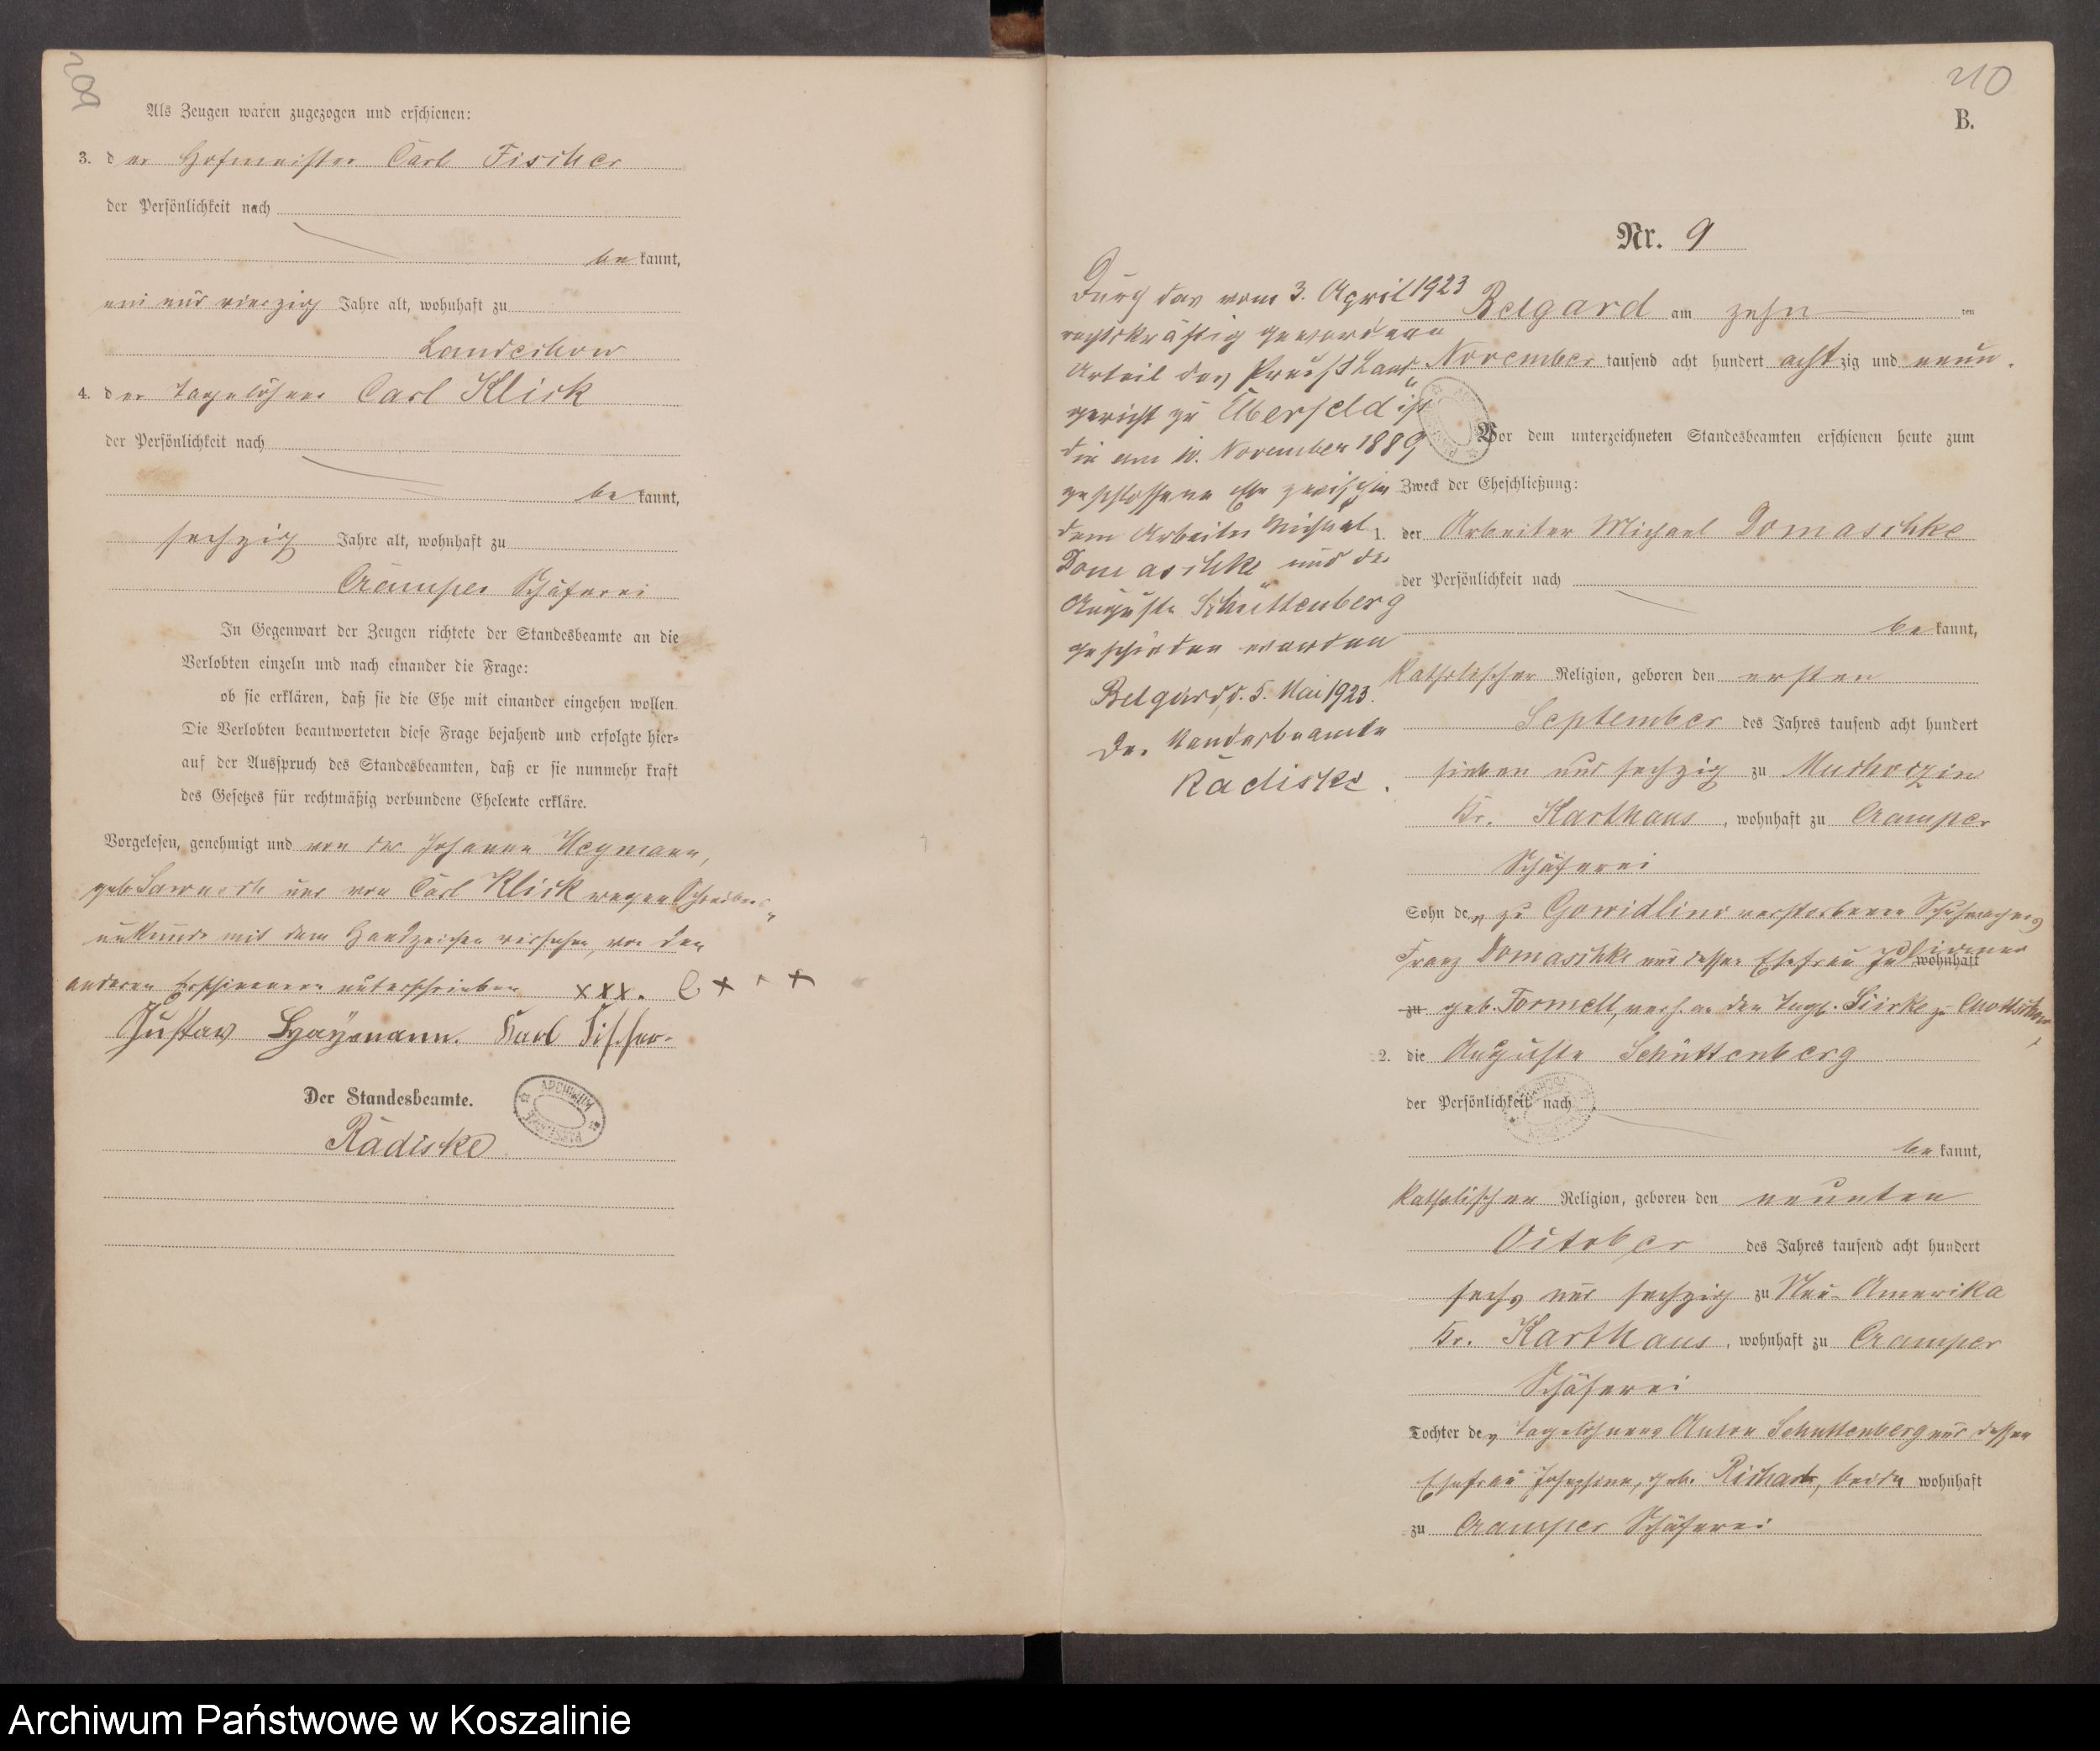 209
Als Zeugen waren zugezogen und erschienen:
3. der Hofmeister Carl Fischer
der Persönlichkeit nach
be kannt,
ein und vierzig Jahre alt, wohnhaft zu
Landechow
4. der Tagelöhner Carl Klick
der Persönlichkeit nach
be kannt,
sechzig Jahre alt, wohnhaft zu
Cramper Schäferei
In Gegenwart der Zeugen richtete der Standesbeamte an die
Verlobten einzeln und nach einander die Frage:
ob sie erklären, daß sie die Ehe mit einander eingehen wollen.
Die Verlobten beantworteten diese Frage bejahend und erfolgte hier-
auf der Ausspruch des Standesbeamten, daß er sie nunmehr kraft
des Gesetzes für rechtmäßig verbundene Eheleute erkläre.
Vorgelesen, genehmigt und von der Johanna Heymann,
geb. und von Carl Klick wegen Schreibens
unkunde mit dem Handzeichen versehen, von den
anderen Erschienenen unterschrieben xxx. + +
Gustav Haÿmann. Karl Fischer.
Der Standesbeamte.
ARCHIWUM
Radiske
210
B.
Nr. 9
Durch das vom 3. April 1923
rechtskräftig gewordene
Urteil des Preuß Land"
gericht zu Elberfeld ist
die am 10. November 1889
geschlossene Ehe zwischen
dem Arbeiter Michael
Domaschke und der
Auguste Schüttenberg
geschieden worden
Belgard, d. 5. Mai 1923.
Der Standesbeamte
Radiske.
Belgard am zehn ten
November tausend acht hundert achtzig und neun.
Vor dem unterzeichneten Standesbeamten erschienen heute zum
Zweck der Eheschließung:
1. der Arbeiter Michael Domaschke
der Persönlichkeit nach
be kannt,
katholischer Religion, geboren den ersten
September des Jahres tausend acht hundert
sieben und sechzig zu
Kr. Karthaus, wohnhaft zu Cramper
Schäferei
Sohn des zu Gowidlino verstorbenen Schuhmachers
Franz Domaschke und dessen Ehefrau wohnhaft
zu geb. Formell, verh. an den Tagl. zu
2. die Auguste Schüttenberg
der Persönlichkeit nach
be kannt,
katholischer Religion, geboren den neunten
October des Jahres tausend acht hundert
sechs und sechzig zu Neu-Amerika
Kr. Karthaus, wohnhaft zu Cramper
Schäferei
Tochter des Tagelöhners Anton Schuttenberg und dessen
Ehefrau Josephine, geb. Richert, beide wohnhaft
zu Cramper Schäferei
Archiwum Państwowe w Koszalinie